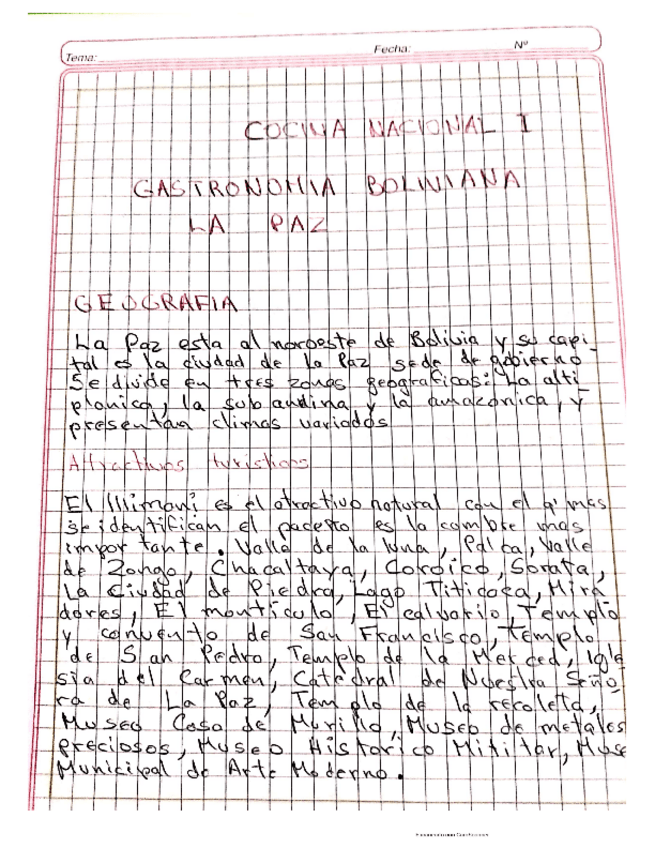 Tema: Fecha: Nº
COCINA NACIONAL I
GASTRONOMIA BOLIVIANA
LA PAZ
GEOGRAFIA
La Paz esta al noroeste de Bolivia y su capi_
tal es la ciudad de la Paz sede de gobierno
Se divide en tres zonas geograficas: La alti
planica, la sub andina y la amazonica, y
presentan climas variados
Attractivos turisticos
El Illimani es el atractivo natural con el q' mas
se identifican el paceño es la cumbre mas
importante. Valle de la luna, Palca, Valle
de Zongo, Chacaltaya, Coroico, Sorata,
La Ciudad de Piedra, Lago Titicaca, Mira
dores, El monticulo, El calvario, Templo
y convento de San Francisco, Templo
de San Pedro, Templo de la Merced, Igle
sia del Carmen, Catedral de Nuestra Seño
ra de La Paz, Templo de la recoleta,
Museo Casa de Murillo, Museo de metales
preciosos, Museo Historico Militar, Muse
Municipal de Arte Moderno.